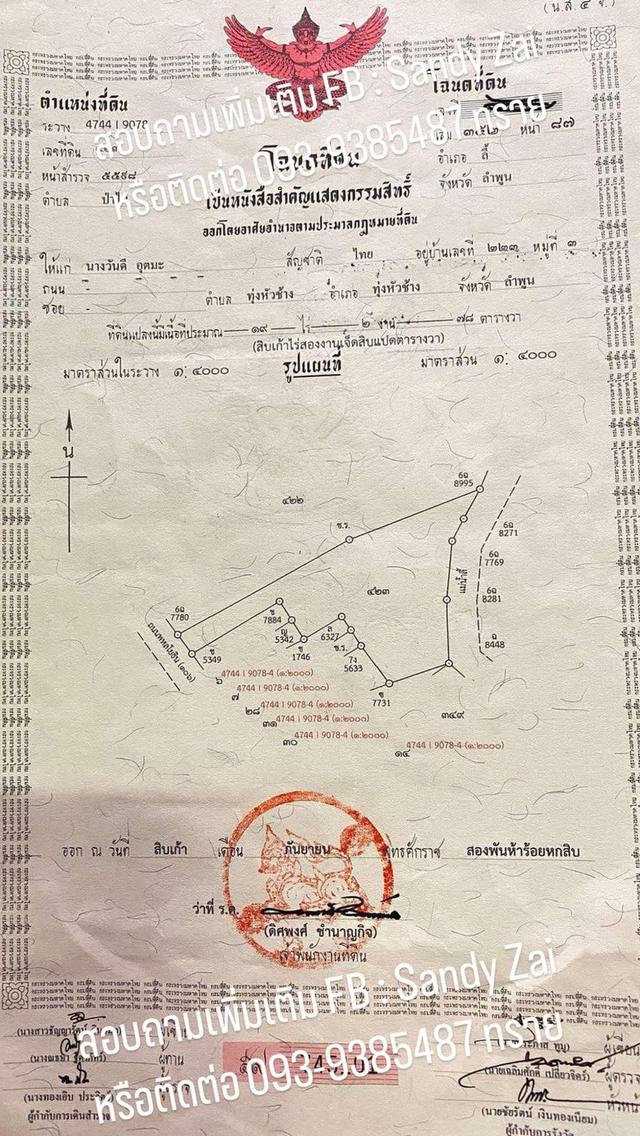 (น.ส.๔ จ.)
ตำแหน่งที่ดิน
โฉนดที่ดิน
ระวาง 4744 I 9078
เลขที่ดิน
เล่ม ๓๕๒ หน้า ๘๗
หน้าสำรวจ ๕๕๙๘
อำเภอ ลี้
ตำบล ป่าไผ่
จังหวัด ลำพูน
สอบถามเพิ่มเติม FB : Sandy Zai
หรือติดต่อ 093-9385487 ทราย
โฉนดที่ดิน
เป็นหนังสือสำคัญแสดงกรรมสิทธิ์
ออกโดยอาศัยอำนาจตามประมวลกฎหมายที่ดิน
ให้แก่ นางวันดี อุดมะ สัญชาติ ไทย อยู่บ้านเลขที่ ๒๒๓ หมู่ที่ ๑
ถนน -
ซอย - ตำบล ทุ่งหัวช้าง อำเภอ ทุ่งหัวช้าง จังหวัด ลำพูน
ที่ดินแปลงนี้มีเนื้อที่ประมาณ ๑๙ ไร่ ๒ งาน ๗๘ ตารางวา
(สิบเก้าไร่สองงานเจ็ดสิบแปดตารางวา)
มาตราส่วนในระวาง ๑: ๔๐๐๐
รูปแผนที่
มาตราส่วน ๑: ๔๐๐๐
น
๔๒๒
6ฉ
8995
6ฉ
8271
ช.ร.
6ฉ
7769
แม่น้ำลี้
๔๒๓
6ฉ
8281
6ฉ
7780
ช
7884
ญ
5342
ล
6327
ฉ
8448
ช
5349
ช
1746
ช.ร.
7ง
5633
ช
7731
ถนนพหลโยธิน (๑๐๖)
๖ 4744 I 9078-4 (๑:๒๐๐๐)
๗ 4744 I 9078-4 (๑:๒๐๐๐)
๒๘ 4744 I 9078-4 (๑:๒๐๐๐)
๓๑ 4744 I 9078-4 (๑:๒๐๐๐)
๓๐ 4744 I 9078-4 (๑:๒๐๐๐)
๓๔๙
๑๔ 4744 I 9078-4 (๑:๒๐๐๐)
ออก ณ วันที่ สิบเก้า เดือน กันยายน พุทธศักราช สองพันห้าร้อยหกสิบ
ว่าที่ ร.ต.
(ดิศพงศ์ ชำนาญกิจ)
เจ้าพนักงานที่ดิน
สอบถามเพิ่มเติม FB : Sandy Zai
หรือติดต่อ 093-9385487 ทราย
ผู้เขียน
ผู้ทาน
(นายเฉลิมศักดิ์ เปลี่ยวจิตร์) ผู้ตรวจ
(นางทองเอิบ
ผู้กำกับการเดินสำรวจ
(นายชัยรัตน์ เงินทองเนียม)